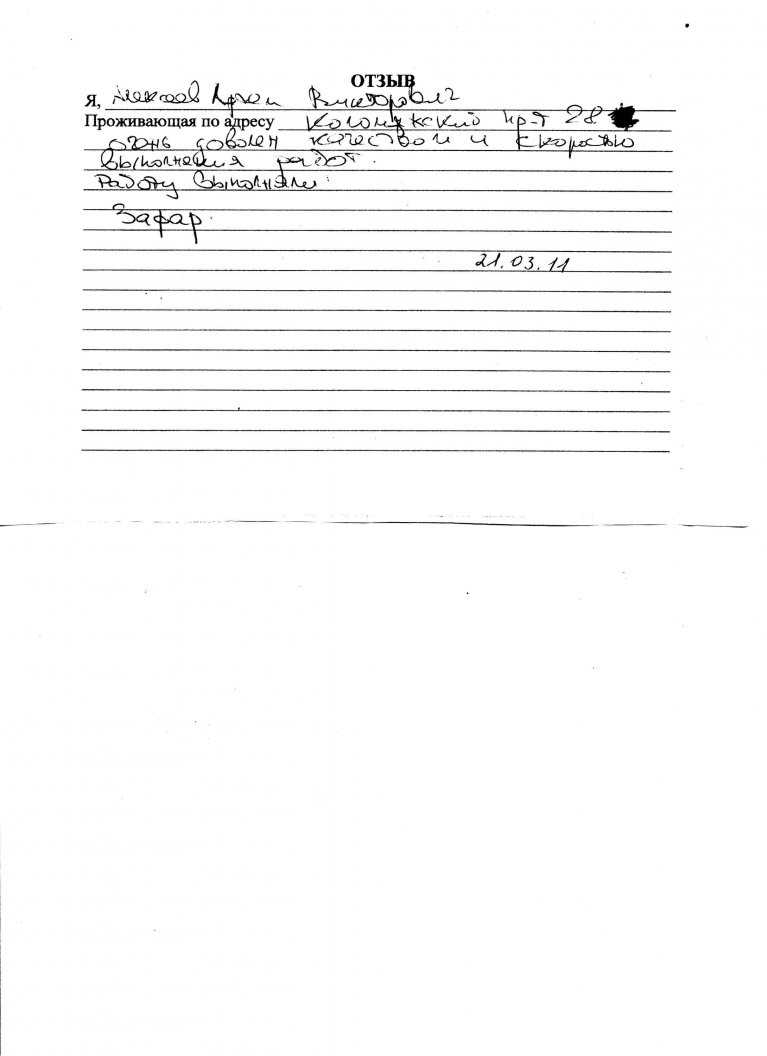 ОТЗЫВ
Я, Викторович
Проживающая по адресу Коломяжский пр-т 28
очень доволен качеством и скоростью
выполнения работ.
Работу выполняли:
Зафар.
21.03.11